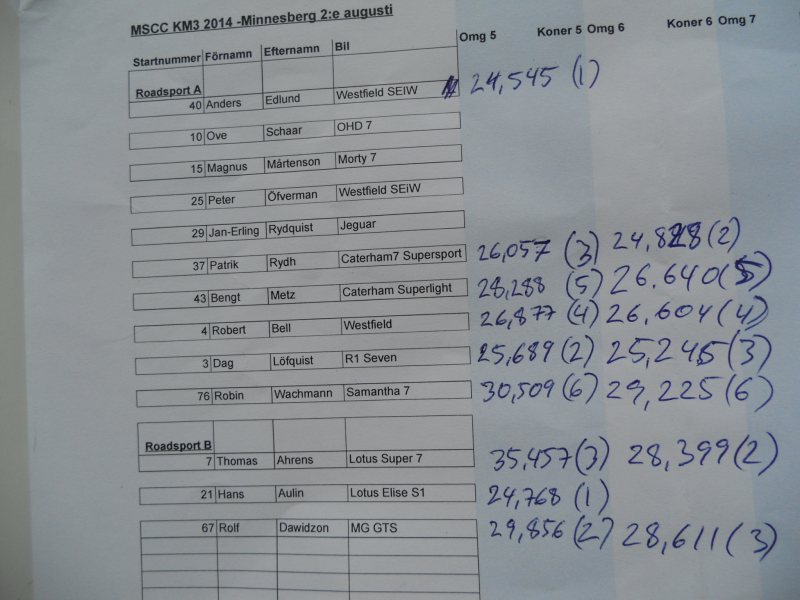 MSCC KM3 2014 -Minnesberg 2:e augusti
Startnummer Förnamn Efternamn Bil Omg 5 Koner 5 Omg 6 Koner 6 Omg 7
Roadsport A
40 Anders Edlund Westfield SEIW 24,545 (1)
10 Ove Schaar OHD 7
15 Magnus Mårtenson Morty 7
25 Peter Öfverman Westfield SEiW
29 Jan-Erling Rydquist Jeguar
37 Patrik Rydh Caterham7 Supersport 26,057 (3) 24,828 (2)
43 Bengt Metz Caterham Superlight 28,288 (5) 26.640 (5)
4 Robert Bell Westfield 26,877 (4) 26,604 (4)
3 Dag Löfquist R1 Seven 25,689 (2) 25,245 (3)
76 Robin Wachmann Samantha 7 30,509 (6) 29,225 (6)
Roadsport B
7 Thomas Ahrens Lotus Super 7 35,457 (3) 28,399 (2)
21 Hans Aulin Lotus Elise S1 24,768 (1)
67 Rolf Dawidzon MG GTS 29,856 (2) 28,611 (3)